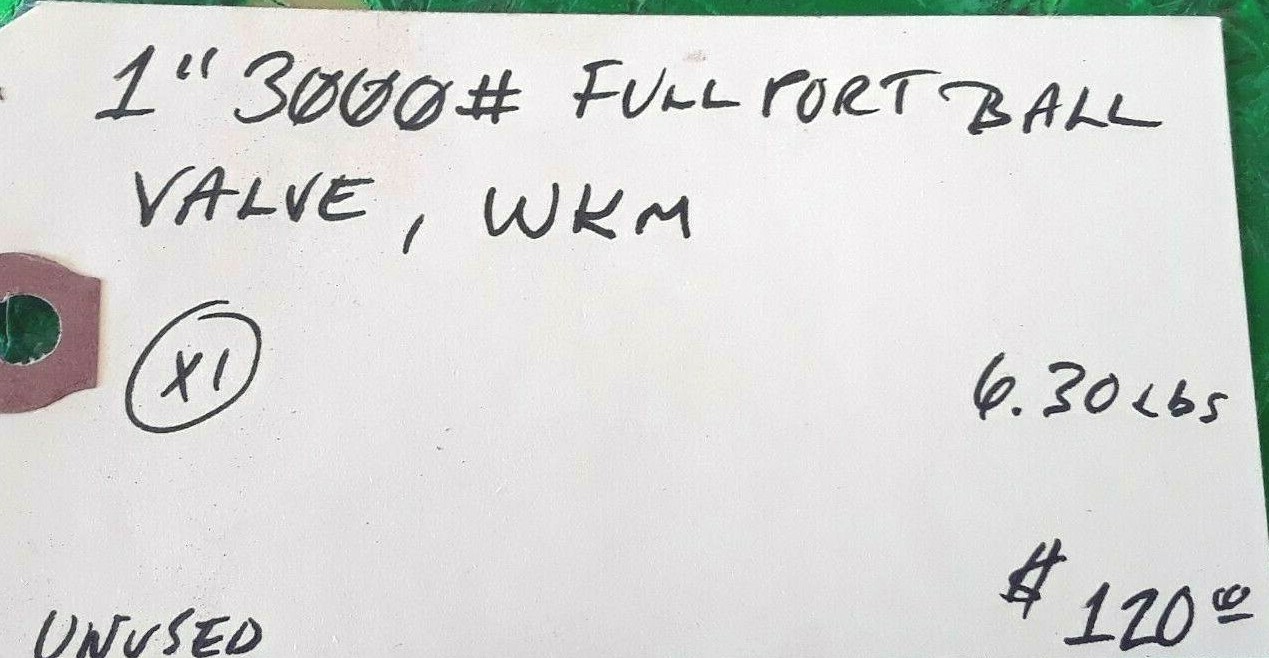 1" 3000# FULL PORT BALL
VALVE, WKM
X1
6.30 Lbs
$ 120.00
UNUSED